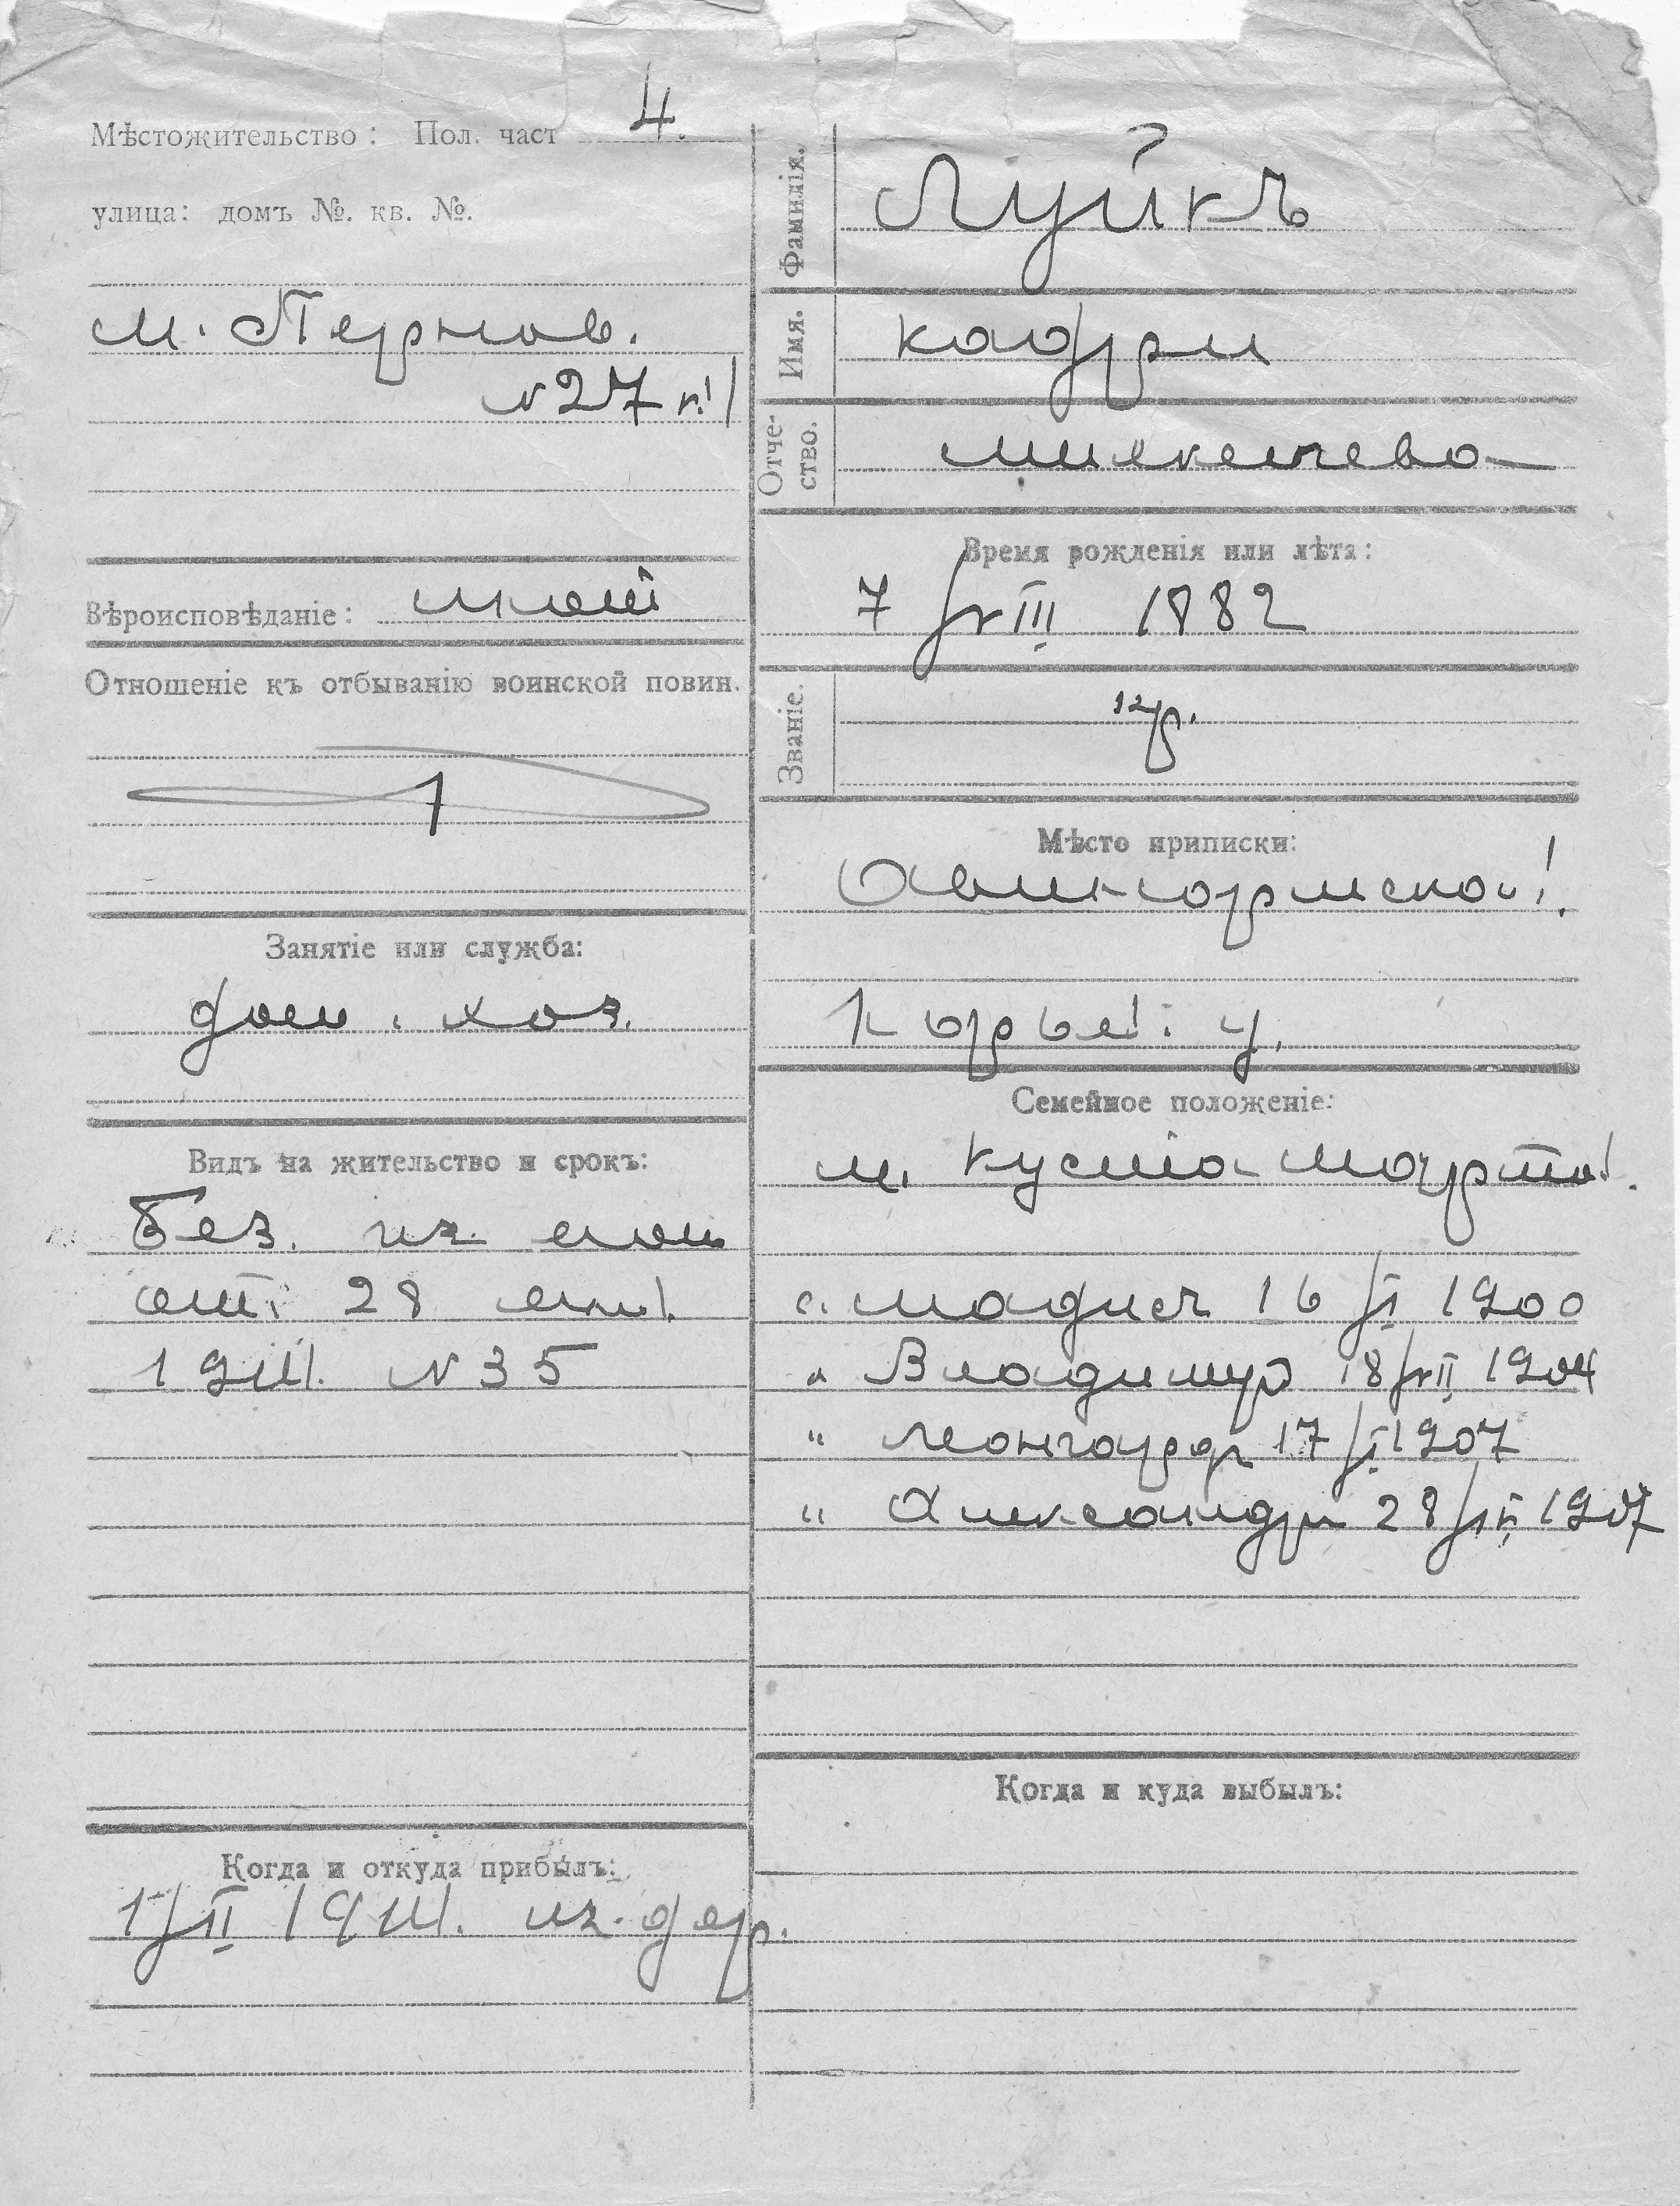 Мѣстожительство: Пол. част 4.
улица: домъ №. кв. №.
м. Пернов.
№ 27 к. 1
Вѣроисповѣданіе: лют
Отношеніе къ отбыванію воинской повин.
Занятіе или служба:
дом. хоз.
Видъ на жительство и срокъ:
Без.
от. 28
1911. № 35
Когда и откуда прибылъ:
1/II 1911. из. дер.
Фамилія. Луйкъ
Имя. Кадри
Отчество.
Время рождения или лѣта:
7/VIII 1882
Званіе. кр.
Мѣсто приписки:
Авинормской
Юрьев. у.
Семейное положеніе:
м. Куста Март.
с. Мадис 16/VI 1900
" Владимир 18/VII 1904
" Леонгард 17/VI 1907
" Александр 28/IV 1907
Когда и куда выбылъ: